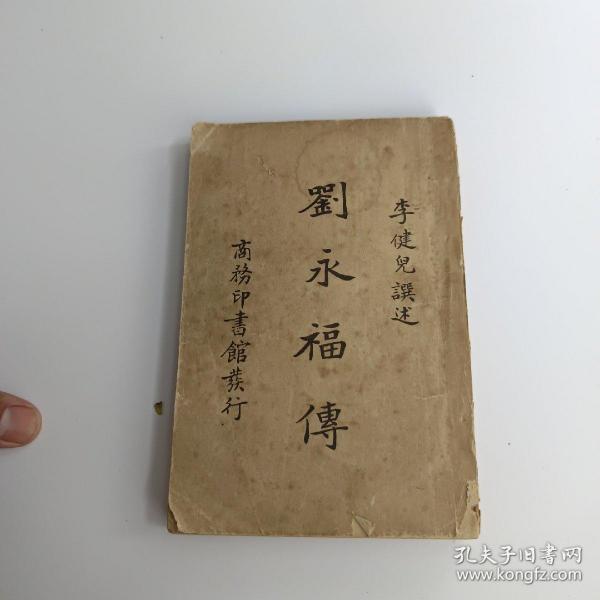 李健兒譔述
劉永福傳
商務印書館發行
孔夫子旧书网
www.kongfz.com